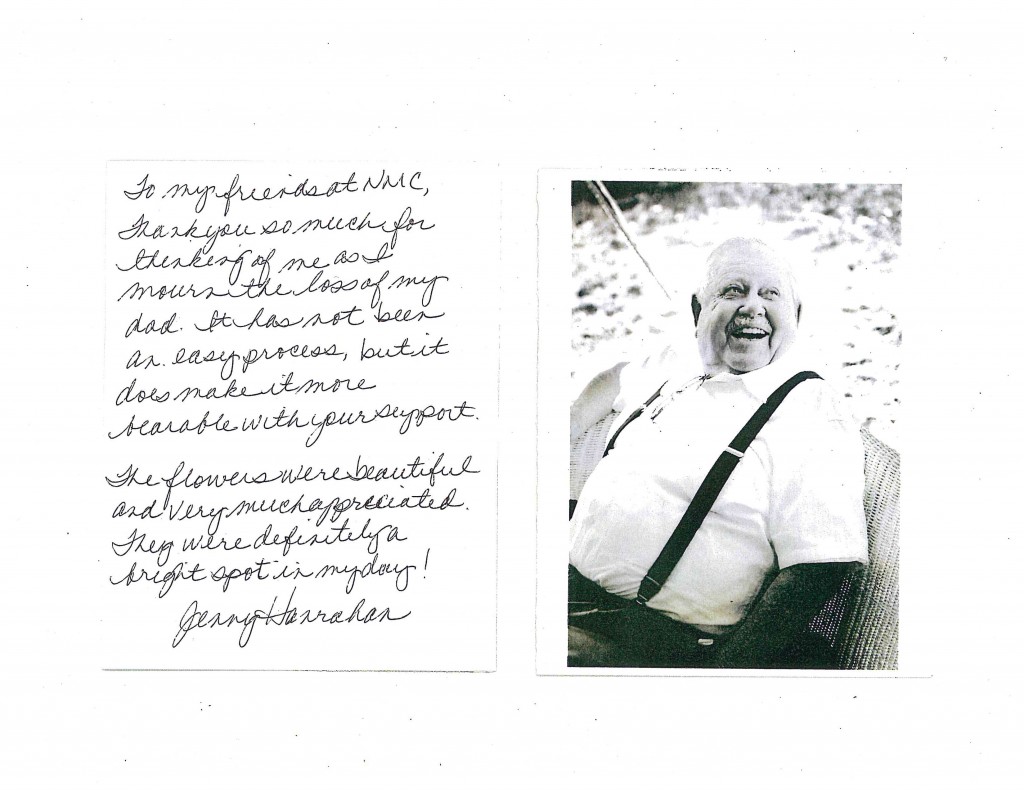 To my friends at NMC,
Thank you so much for
thinking of me as I
mourn the loss of my
dad. It has not been
an easy process, but it
does make it more
bearable with your support.
The flowers were beautiful
and very much appreciated.
They were definitely a
bright spot in my day!
Jenny Hanrahan